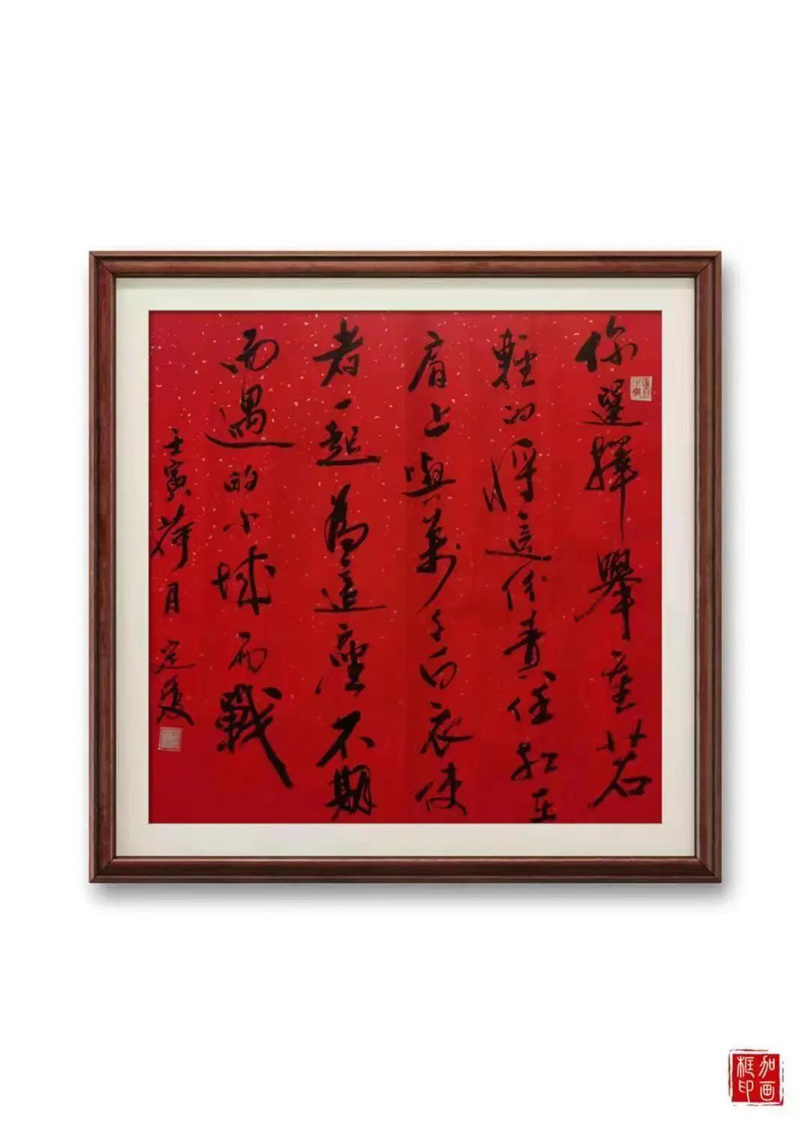 你選擇舉重若
輕的將這份責任扛在
肩上與萬千白衣使
者一起為這座不期
而遇的小城而戰
壬寅荷月
加画
框印